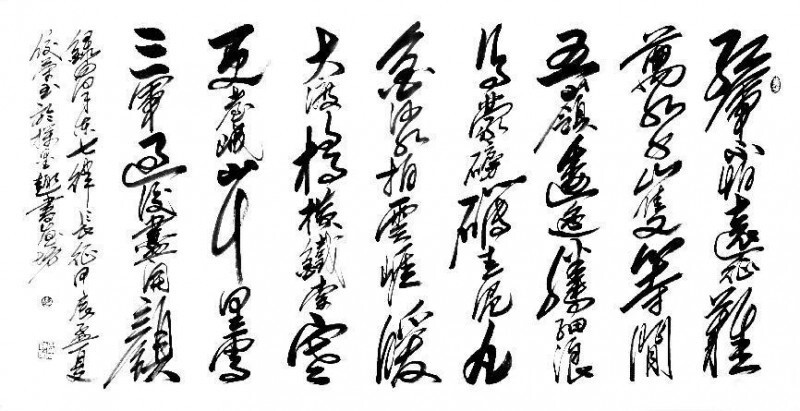 紅軍不怕遠征難
萬水千山隻等閒
五嶺逶迤騰細浪
烏蒙磅礴走泥丸
金沙水拍雲崖暖
大渡橋橫鐵索寒
更喜岷山千里雪
三軍過後盡開顏
錄毛澤東七律長征甲辰孟夏
於墨趣書畫坊